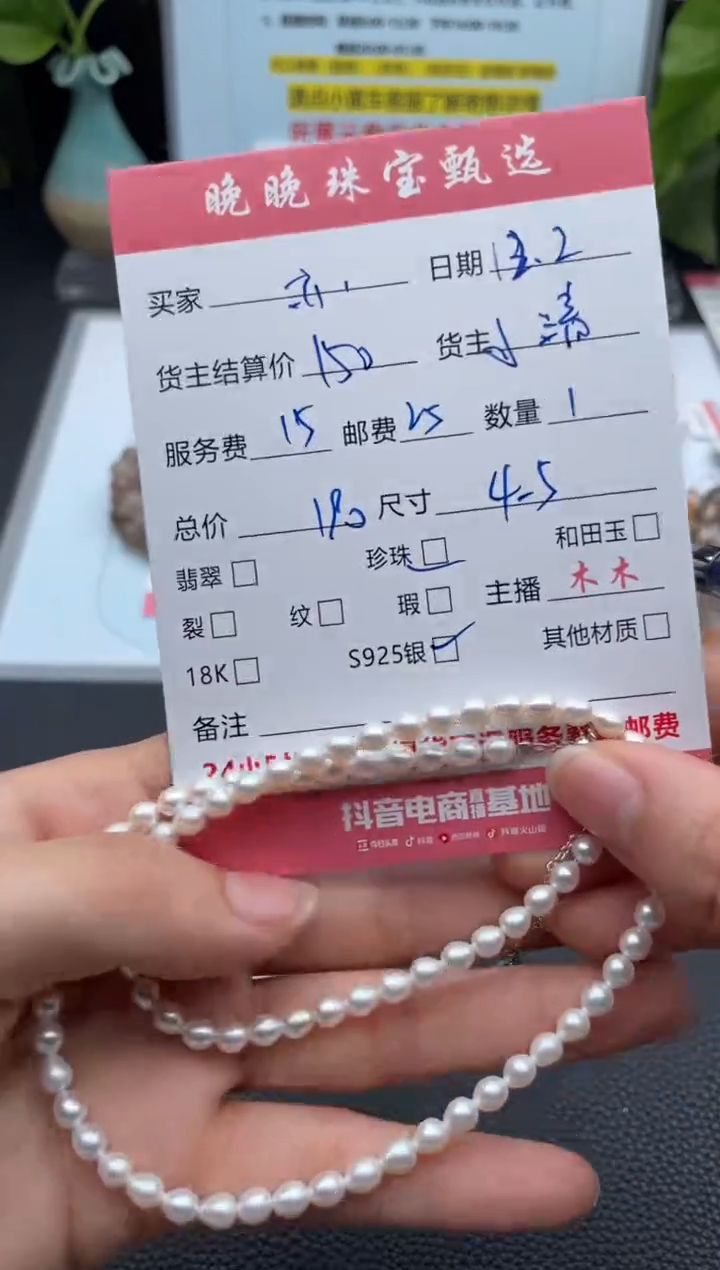 晚晚珠宝甄选
买家 日期 12.2
货主结算价 150 货主 小清
服务费 15 邮费 25 数量 1
总价 190 尺寸 4-5
翡翠 珍珠 和田玉
裂 纹 瑕 主播 木木
18K S925银 其他材质
备注
邮费
抖音电商直播基地
今日头条 抖音 西瓜视频 抖音火山版